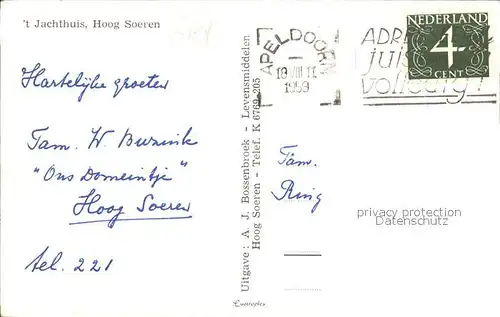 't Jachthuis, Hoog Soeren
Hartelijke groeten
Fam. W. Buzink
"Ons Domeintje"
Hoog Soeren
tel. 221
Uitgave: A. J. Bossenbroek - Levensmiddelen
Hoog Soeren - Telef. K 6769-205
APELDOORN
1959
ADR
juis
volledig!
NEDERLAND
4
CENT
Fam.
Ring
privacy protection
Datenschutz